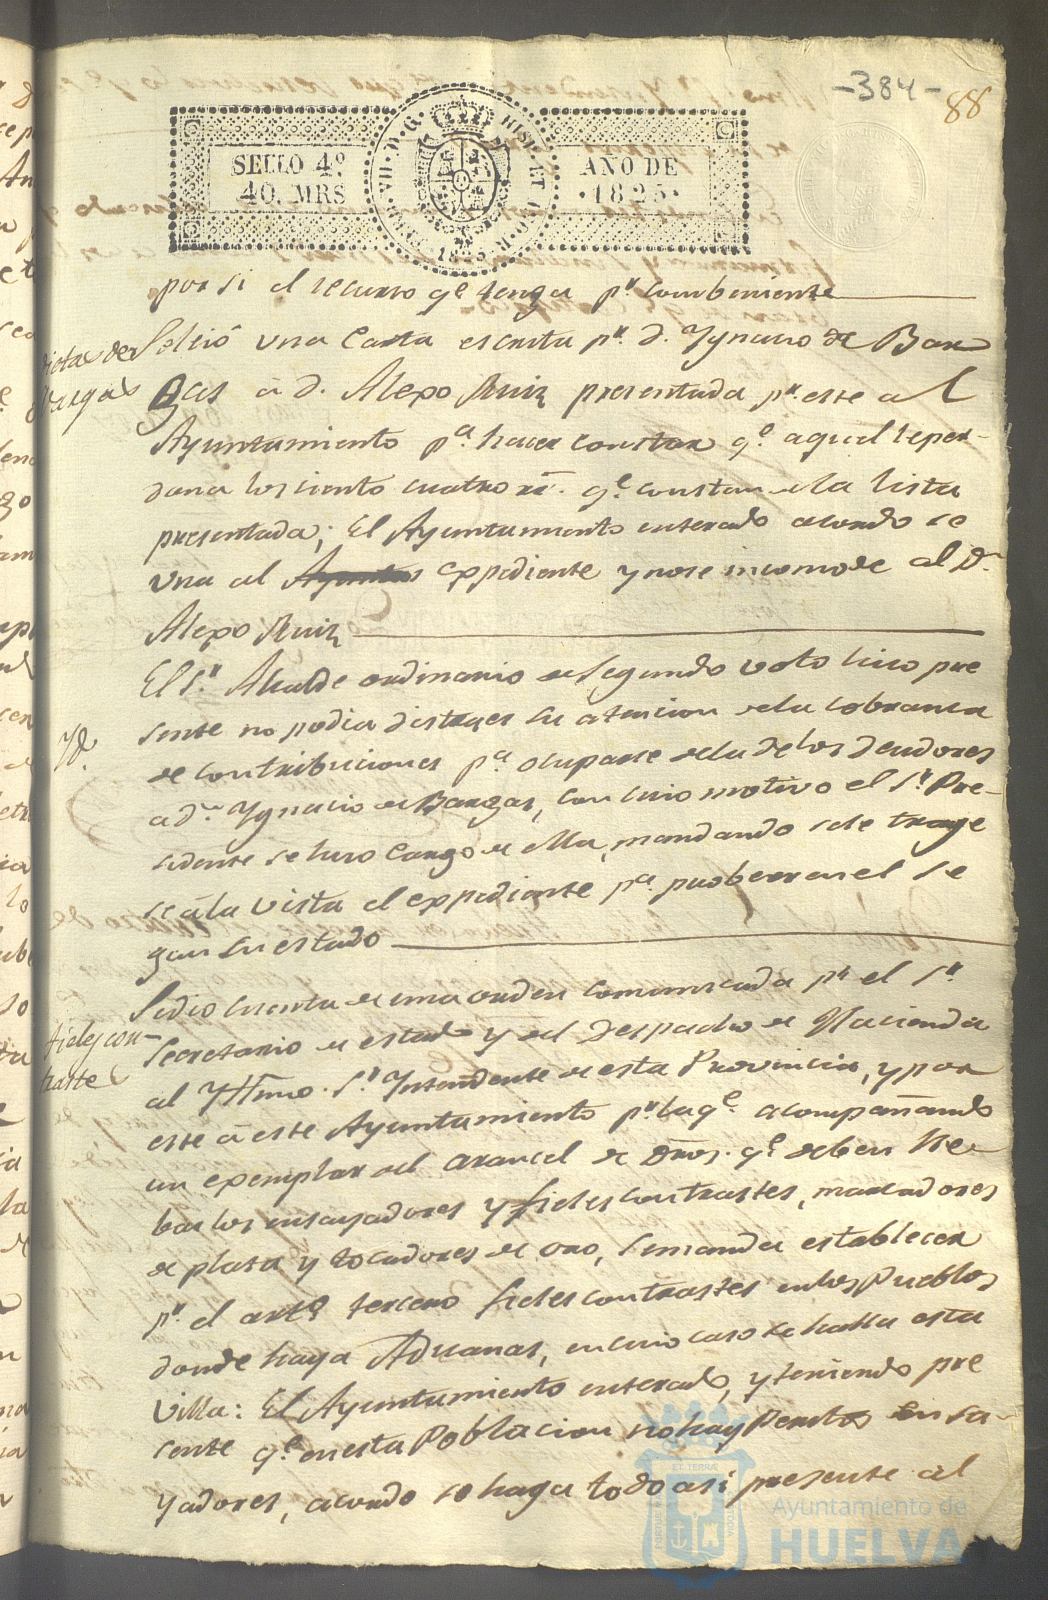 -384-
88
SELLO 4º
40. MRS
HISP. ET
AÑO DE
·1825·
por si el recurso qe. tenga pr. combeniente
dietas de
Vargas
Se leió una Carta escrita pr. d. Ygnacio de Bar
gas a d. Alexo Ruiz presentada pr. este al
Ayuntamiento pa. hacer constar qe. aquel le per-
dona los ciento cuatro rs. qe. constan de la lista
presentada; El Ayuntamiento enterado acordo se
una al expediente y no se incomode al Dn.
Alexo Ruiz
Yd.
El Sr. Alcalde ordinario de segundo voto hiso pre
sente no podia distraer su atencion de la cobransa
de contribuciones pa. ocuparse de la de los deudores
a Dn. Ygnacio de Bargas, con cuio motivo el Sr. Pre-
sidente se hiso cargo de ella, mandando se le traye
se á la vista el expediente pa. probeer en el se
gun su estado
fieles con-
traste
Se dio cuenta de una orden comunicada pr. el Sr.
Secretario de estado y del Despacho de Hacienda
al Yltmo. Sr. Yntendente de esta Provincia, y por
este a este Ayuntamiento pr. la qe. acompañando
un exemplar del arancel de Dros. qe. deben lle-
bar los ensayadores y fieles contrastes, marcadores
de plata y tocadores de oro, se manda establecer
pr. el arto. tercero fieles contrastes en los Pueblos
donde haya Aduanas, en cuio caso se halla esta
Villa: El Ayuntamiento enterado, y teniendo pre
sente qe. en esta Poblacion no hay Peritos Ensa-
yadores, acordo se haga todo asi presente al
Ayuntamiento de
HUELVA